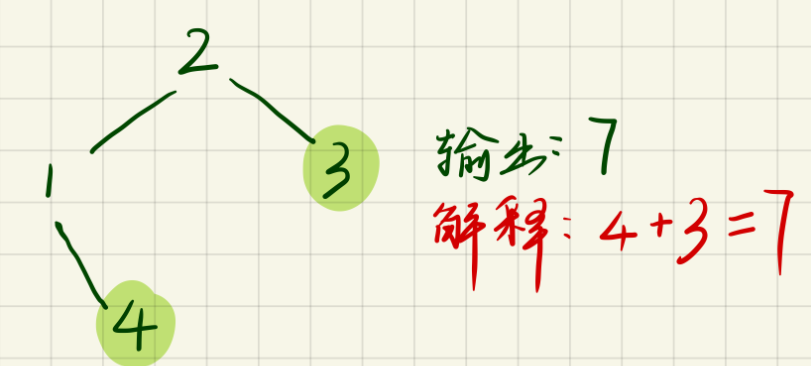 2
1
3
4
输出: 7
解释: 4+3=7